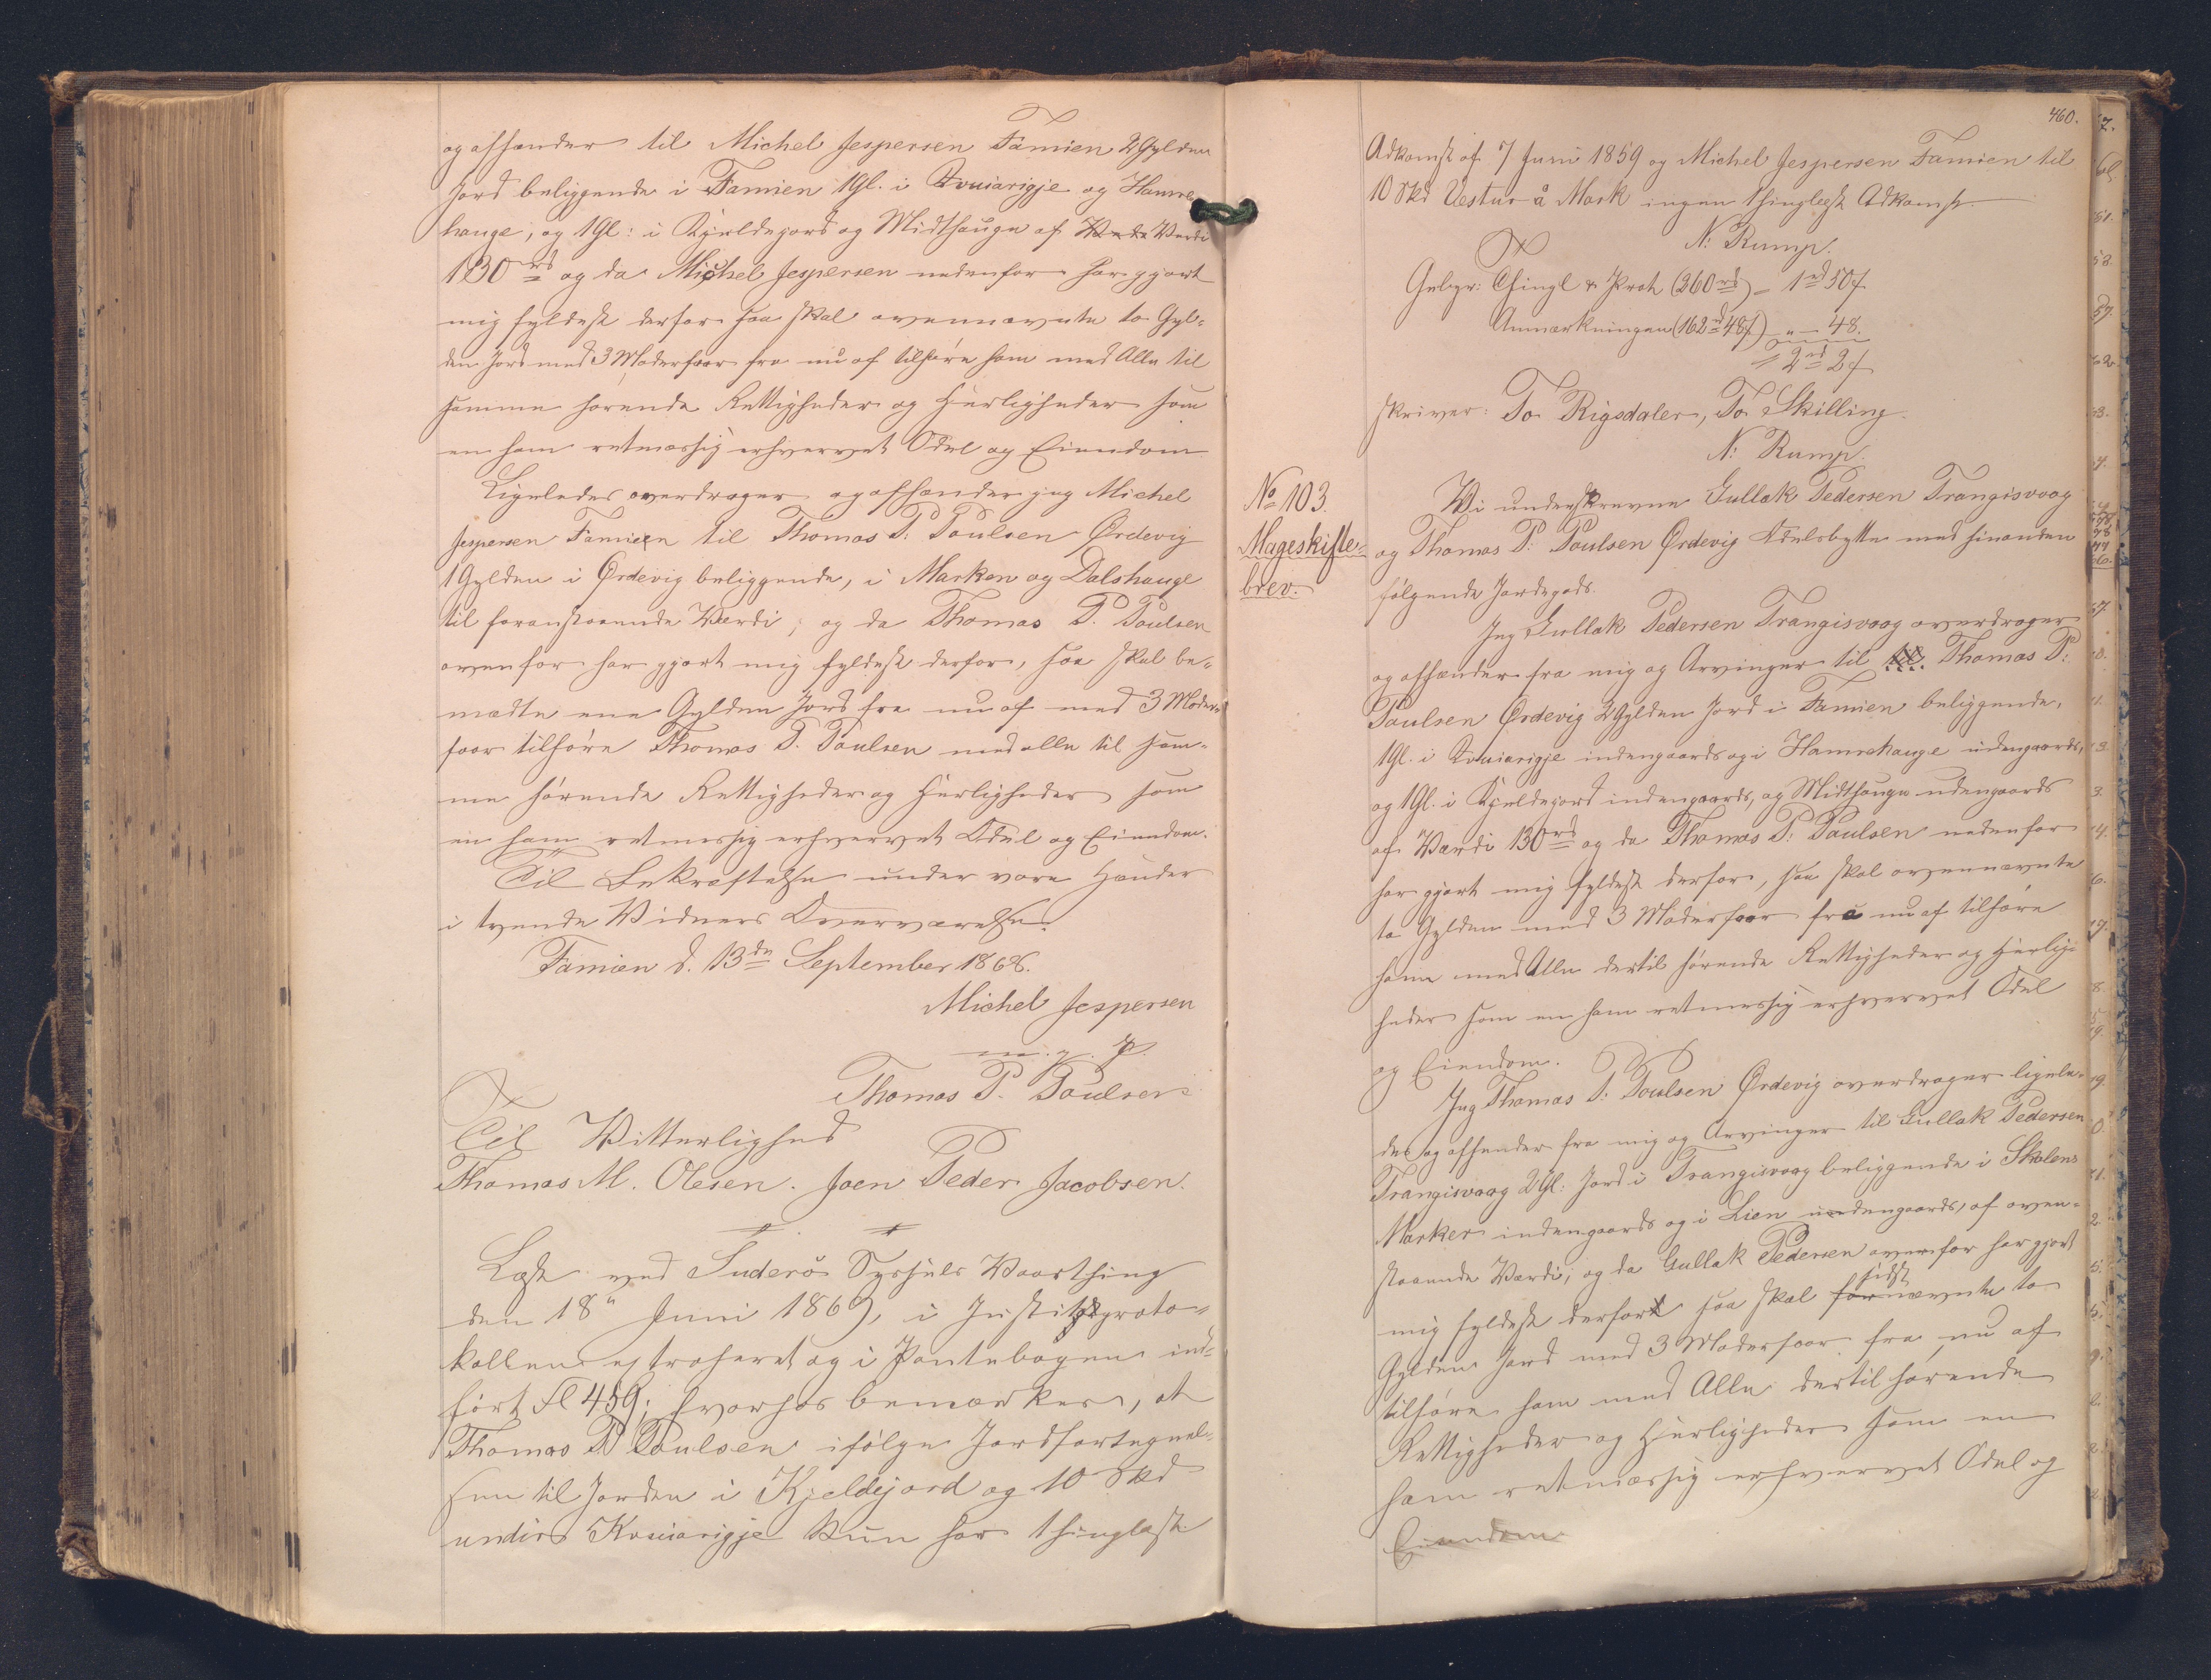 og afhænder til Michel Jespersen Famien 2 Gylden
Jord beliggende i Famien 1 Gl. i Kvuiarigje og Hamre
hauge, og 1 Gl: i Kjeldegord og Midthauge af Værdi
130 rd og da Michel Jespersen nedenfor har gjort
mig fyldest derfor saa skal ovennævnte to Gyl-
den Jord med 3 Moderfaar fra nu af tilhøre ham med Alle til
samme hørende Rettigheder og Herligheder som
en ham retmæssig erhvervet Odel og Eiendom
Ligeledes overdrager og afhænder jeg Michel
Jespersen Famien til Thomas P: Poulsen Ørdevig
1 Gylden i Ørdevig beliggende, i Marken og Dalshauge
til foranstaaende Værdi, og da Thomas P. Poulsen
ovenfor har gjort mig fyldest derfor, saa skal be-
mældte ene Gylden Jord fra nu af med 3 Moder-
faar tilhøre Thomas P. Poulsen med alle til sam-
me hørende Rettigheder og Herligheder som
en ham retmæssig erhvervet Odel og Eiendom.
Til Bekræftelse under vore Hænder
i tvende Vidners Overværelse.
Famien d. 13de September 1868.
Michel Jespersen
m. p. P.
Thomas P. Poulsen
Til Vitterlighed
Thomas M. Olesen. Joen Peder Jacobsen.
Læst ved Suderø Syssels Vaarthing
den 18 Juni 1869, i Justitsproto-
kollen extraheret og i Pantebogen ind-
ført Fl 459; hvorhos bemærkes, at
Thomas P Poulsen ifølge Jordfortegnel-
sen til Jorden i Kjeldejord og 10 Skd
undir Kvuiarigje kun har thinglæst
460.
Adkomst af 7 Juni 1859 og Michel Jespersen Famien til
10 Skd Vestur å Mark ingen thinglæst Adkomst.
N: Rump.
Gebyr: Thingl & Prot (260 rd) = 1 rd 50 f
Anmærkningen (162 rd 48 f) " - 48.
2 rd 2 f
skriver: To Rigsdaler, To Skilling.
N: Rump.
No 103.
Mageskifte-
brev.
Vi underskrevne Gullak Pedersen Trangisvaag
og Thomas P: Poulsen Ørdevig Odelsbytte med hinanden
følgende Jordegods.
Jeg Gullak Pedersen Trangisvaag overdrager
og afhænder fra mig og Arvinger til til Thomas P:
Poulsen Ørdevig 2 Gylden Jord i Famien beliggende,
1 Gl. i Kvuiarigje indengaards og i Hamrehauge udengaards,
og 1 Gl. i Kjeldejord indengaards, og Midthauge udengaards
af Værdi 130 rd og da Thomas P: Poulsen nedenfor
har gjort mig fyldest derfor, saa skal ovennævnte
to Gylden med 3 Moderfaar fra nu af tilhøre
ham med Alle dertil hørende Rettigheder og Herlig-
heder som en ham retmæssig erhvervet Odel
og Eiendom.
Jeg Thomas P: Poulsen Ørdevig overdrager ligele-
des og afhænder fra mig og Arvinger til Gullak Pedersen
Trangisvaag 2 Gl: Jord i Trangisvaag beliggende i Skolens
Marker indengaards og i Lien udengaards, af oven-
staaende Værdi, og da Gullak Pedersen ovenfor har gjort
mig fyldest derfor saa skal sidst fornævnte to
Gylden Jord med 3 Moderfaar fra nu af
tilhøre ham med Alle dertil hørende
Rettigheder og Herligheder som en
ham retmæssig erhvervet Odel og
Eiendom